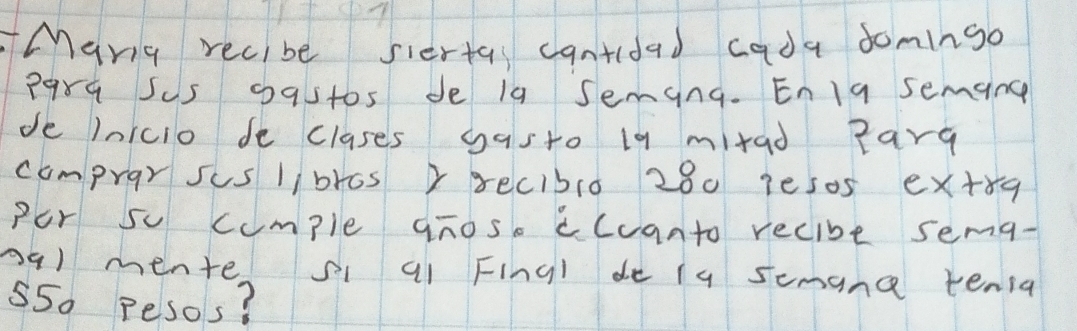 -Maria recibe sierta, cantidad cada domingo
para sus gastos de la semana. En la semana
de inicio de clases gasto la mitad para
comprar sus libros y recibio 280 pesos extra
por su cumple años. ¿Cuanto recibe sema-
nal mente, si al Final de la semana tenia
550 pesos?